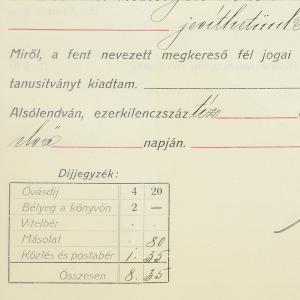 jevíthetünk
Miről, a fent nevezett megkereső fél jogai
tanusitványt kiadtam.
Alsólendván, ezerkilenczszáz tíz
napján.
Dijjegyzék:
Óvásdij 4 20
Bélyeg a könyvön 2 —
Vitelbér . .
Másolat . 80
Közlés és postabér 1. 35
Összesen 8. 35